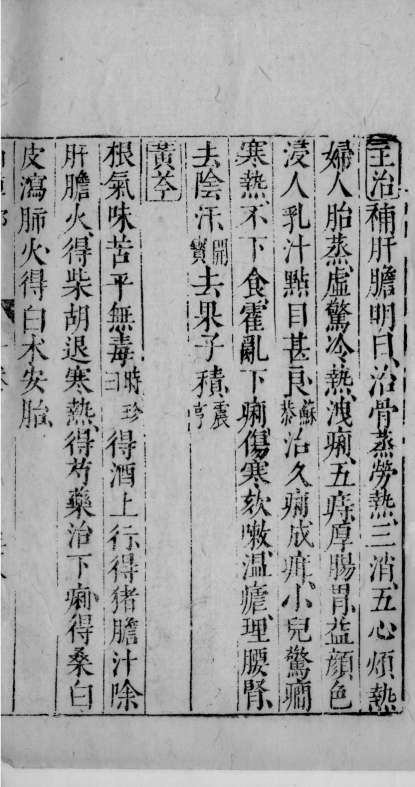 主治補肝膽明目治骨蒸勞熱三消五心煩熱
婦人胎蒸虛驚冷熱洩痢五痔厚腸胃益顏色
浸人乳汁點目甚良蘇恭治久痢成疳小兒驚癇
寒熱不下食霍亂下痢傷寒欬嗽溫瘧理腰腎
去陰汗開寶去果子積震亨
黃芩
根氣味苦平無毒時珍曰得酒上行得猪膽汁除
肝膽火得柴胡退寒熱得芍藥治下痢得桑白
皮瀉肺火得白朮安胎